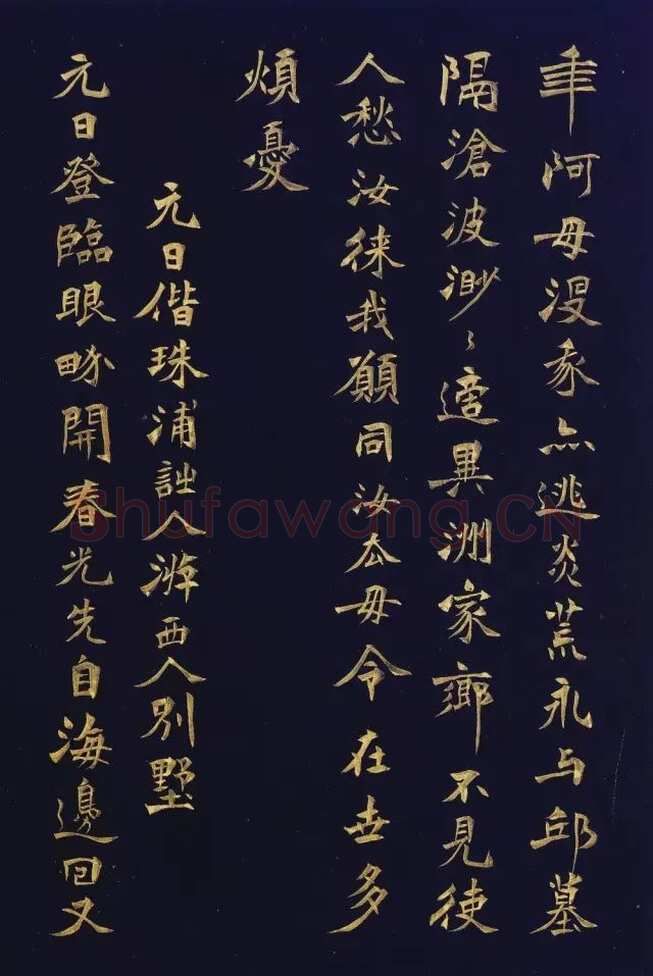 年阿母沒亦逃炎荒永与邱墓
隔滄波渺々適異洲家鄉不見使
人愁汝徠我願同汝厺毋令在世多
煩憂
元日偕珠浦詘人游西人別墅
元日登臨眼畍開春光先自海邊回又
shufawang.CN